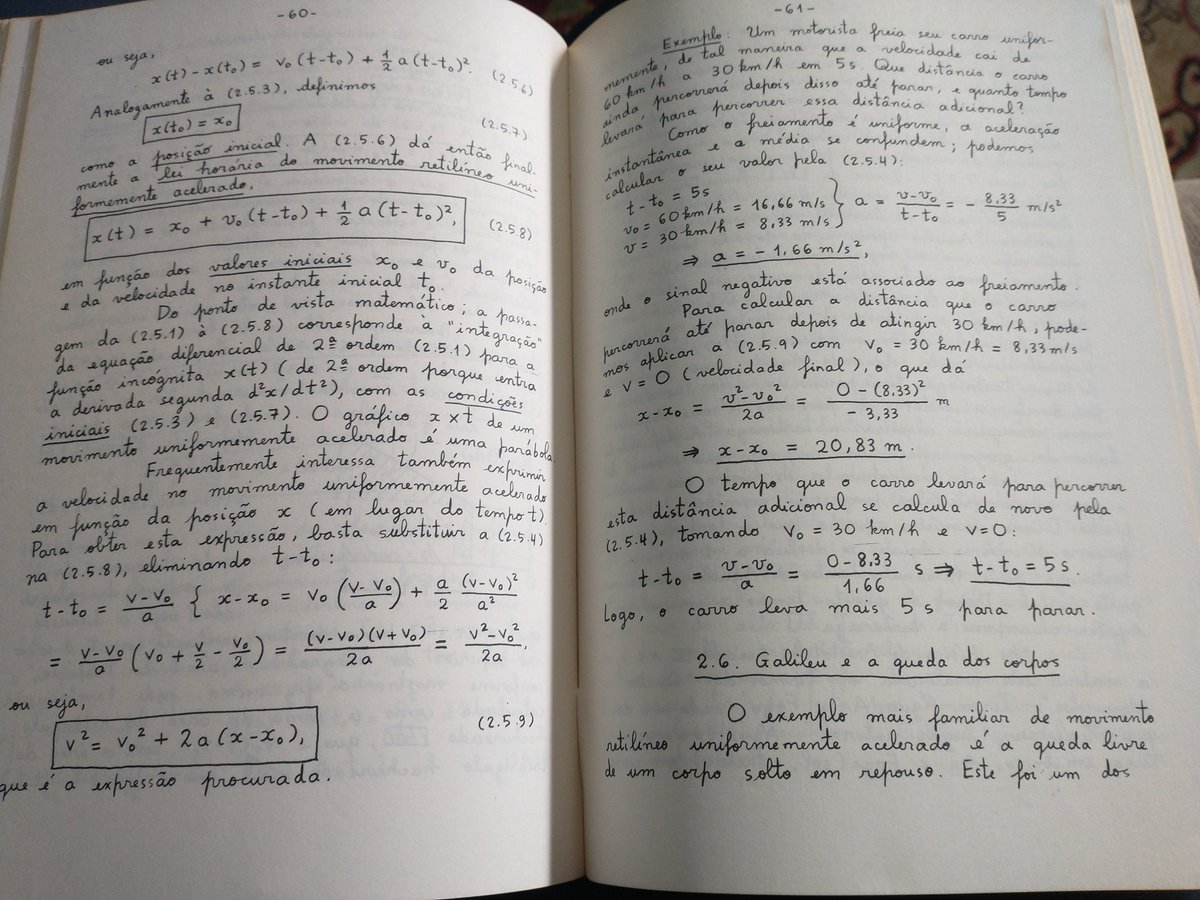 -60-
ou seja,
x(t) - x(t₀) = v₀(t-t₀) + ½ a(t-t₀)². (2.5.6)
Analogamente à (2.5.3), definimos
x(t₀) = x₀ (2.5.7)
como a posição inicial. A (2.5.6) dá então final-
mente a lei horária do movimento retilíneo uni-
formemente acelerado,
x(t) = x₀ + v₀(t-t₀) + ½ a(t-t₀)², (2.5.8)
em função dos valores iniciais x₀ e v₀ da posição
e da velocidade no instante inicial t₀.
Do ponto de vista matemático, a passa-
gem da (2.5.1) à (2.5.8) corresponde à "integração"
da equação diferencial de 2ª ordem (2.5.1) para a
função incógnita x(t) (de 2ª ordem porque entra
a derivada segunda d²x/dt²), com as condições
iniciais (2.5.3) e (2.5.7). O gráfico x × t de um
movimento uniformemente acelerado é uma parábola.
Frequentemente interessa também exprimir
a velocidade no movimento uniformemente acelerado
em função da posição x (em lugar do tempo t).
Para obter esta expressão, basta substituir a (2.5.4)
na (2.5.8), eliminando t-t₀:
t-t₀ = (v-v₀)/a { x-x₀ = v₀ ((v-v₀)/a) + a/2 (v-v₀)²/a²
= (v-v₀)/a (v₀ + v/2 - v₀/2) = (v-v₀)(v+v₀)/2a = (v²-v₀²)/2a,
ou seja,
v² = v₀² + 2a(x-x₀), (2.5.9)
que é a expressão procurada.
-61-
Exemplo: Um motorista freia seu carro unifor-
memente, de tal maneira que a velocidade cai de
60 km/h a 30 km/h em 5s. Que distância o carro
ainda percorrerá depois disso até parar, e quanto tempo
levará para percorrer essa distância adicional?
Como o freiamento é uniforme, a aceleração
instantânea e a média se confundem; podemos
calcular o seu valor pela (2.5.4):
t-t₀ = 5s
v₀ = 60 km/h = 16,66 m/s } a = (v-v₀)/(t-t₀) = - 8,33/5 m/s²
v = 30 km/h = 8,33 m/s
⇒ a = -1,66 m/s²,
onde o sinal negativo está associado ao freiamento.
Para calcular a distância que o carro
percorrerá até parar depois de atingir 30 km/h, pode-
mos aplicar a (2.5.9) com v₀ = 30 km/h = 8,33 m/s
e v = 0 (velocidade final), o que dá
x-x₀ = (v²-v₀²)/2a = (0-(8,33)²)/(-3,33) m
⇒ x-x₀ = 20,83 m.
O tempo que o carro levará para percorrer
esta distância adicional se calcula de novo pela
(2.5.4), tomando v₀ = 30 km/h e v=0:
t-t₀ = (v-v₀)/a = (0-8,33)/1,66 s ⇒ t-t₀ = 5s.
Logo, o carro leva mais 5 s para parar.
2.6. Galileu e a queda dos corpos
O exemplo mais familiar de movimento
retilíneo uniformemente acelerado é a queda livre
de um corpo solto em repouso. Este foi um dos